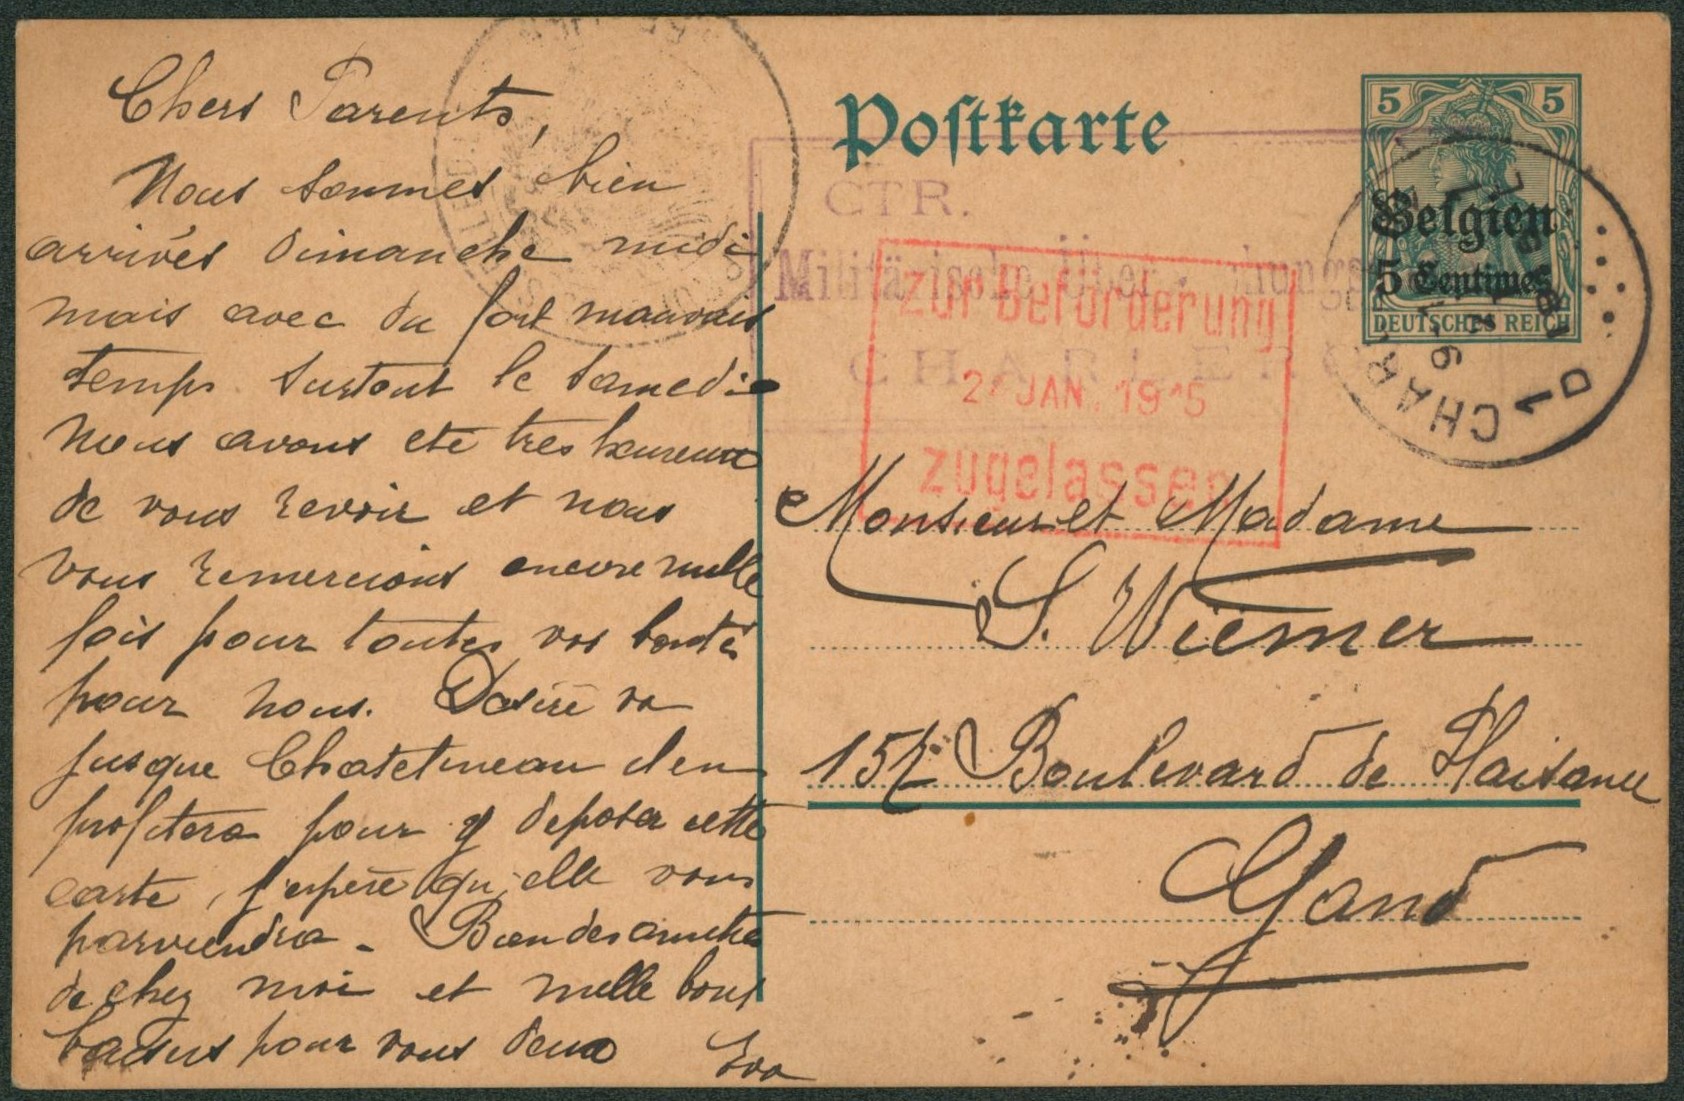 Chers Parents,
Nous sommes bien
arrivés dimanche midi
mais avec du fort mauvais
temps surtout le samedi
Nous avons été très heureux
de vous revoir et nous
vous remercions encore mille
fois pour toutes vos bontés
pour nous. Désiré va
jusque Chatelineau il en
profitera pour y déposer cette
carte, j'espère qu'elle vous
parviendra - Bien des amitiés
de chez moi et mille bons
baisers pour vous deux Eva
Postkarte
5 5
Belgien
5 Centimes
DEUTSCHES REICH
CTR.
Militärische
CHARLERO
zur Beförderung
JAN.
zugelassen
Monsieur et Madame
S. Wiemer
Boulevard de Plaisance
Gand